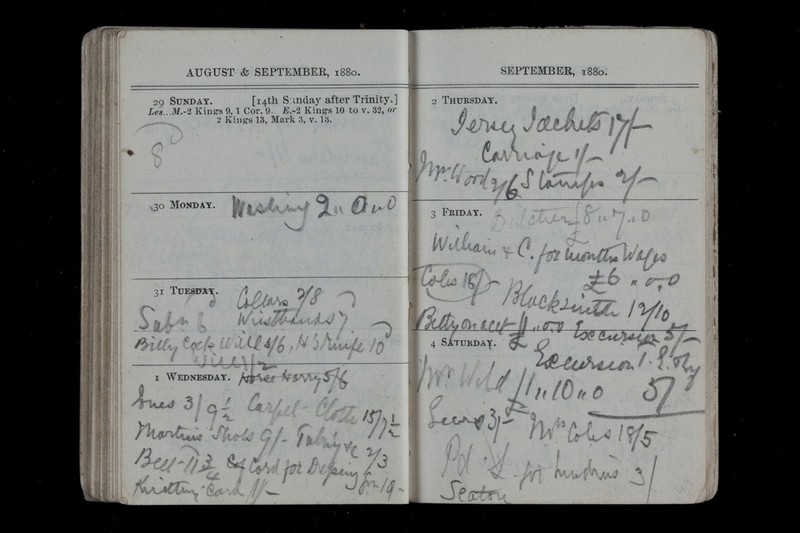 AUGUST & SEPTEMBER, 1880.
29 SUNDAY. [14th Sunday after Trinity.]
Les...M.-2 Kings 9, 1 Cor. 9. E.-2 Kings 10 to v. 32, or
2 Kings 13, Mark 3, v. 13.
8d
30 MONDAY. Washing 2 " 0 " 0
31 TUESDAY. Collars 2/8
6 Wristbands 7
Billy Cock Will 5/6, H S Knife /10
Will 1/2
1 WEDNESDAY. Horse Harry 5/6
3/9½ Carpet Cloth 15/7½
Martins Shoes 9/- &c 2/3
Cord for
Knitting Card 1/-
SEPTEMBER, 1880.
2 THURSDAY.
Jersey Jackets 17/-
Carriage 1/-
Mr Wood 2/6 Stamps 2/-
3 FRIDAY. Butcher £8 " 7 " 0
William & C. for months Wages
Coles 16/- £6 " 0 " 0
Blacksmith 12/10
Betty on acct £1 " 0 " 0 Excursion 5/-
4 SATURDAY. Excursion
Mr Wild £1 " 10 " 0 5/
3/- Mr Coles 18/5
Pd for 3/
Seaton